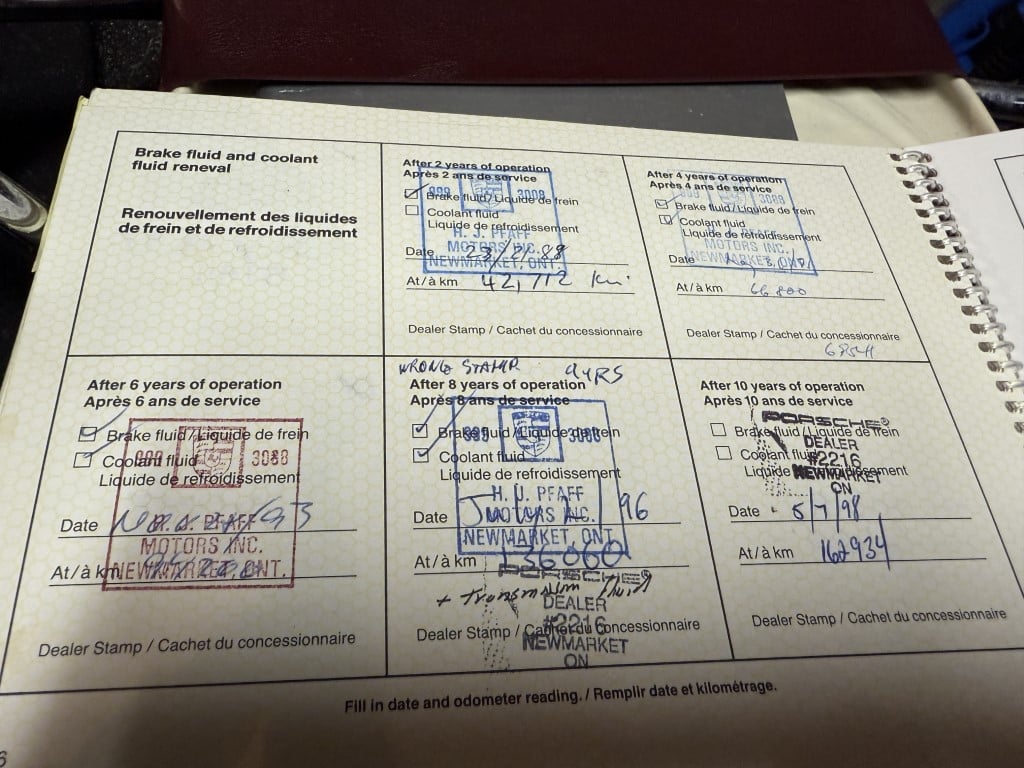 Brake fluid and coolant
fluid reneval
Renouvellement des liquides
de frein et de refroidissement
After 2 years of operation
Après 2 ans de service
999 3088
Brake fluid/Liquide de frein
Coolant fluid
Liquide de refroidissement
H. J. PFAFF
MOTORS INC.
NEWMARKET, ONT.
Date 23/2/88
At/à km 42,712 km.
Dealer Stamp / Cachet du concessionnaire
After 4 years of operation
Après 4 ans de service
3088
Brake fluid/Liquide de frein
Coolant fluid
Liquide de refroidissement
H. J. PFAFF
MOTORS INC.
NEWMARKET, ONT.
Date
At/à km 66 800
Dealer Stamp / Cachet du concessionnaire
After 6 years of operation
Après 6 ans de service
Brake fluid/Liquide de frein
999 3088
Coolant fluid
Liquide de refroidissement
Date
H. J. PFAFF
MOTORS INC.
At/à km
NEWMARKET, ONT.
Dealer Stamp / Cachet du concessionnaire
WRONG STAMP 9YRS
After 8 years of operation
Après 8 ans de service
Brake fluid/Liquide de frein
999 3088
Coolant fluid
Liquide de refroidissement
H. J. PFAFF
Date 96
MOTORS INC.
NEWMARKET, ONT.
At/à km 136060
PORSCHE
+ Transmission Fluid
DEALER
#2216
Dealer Stamp / Cachet du concessionnaire
NEWMARKET
ON
After 10 years of operation
Après 10 ans de service
PORSCHE®
Brake fluid/Liquide de frein
DEALER
Coolant fluid
#2216
Liquide de refroidissement
NEWMARKET
ON
Date 5/7/98
At/à km 162934
Dealer Stamp / Cachet du concessionnaire
Fill in date and odometer reading. / Remplir date et kilométrage.
6